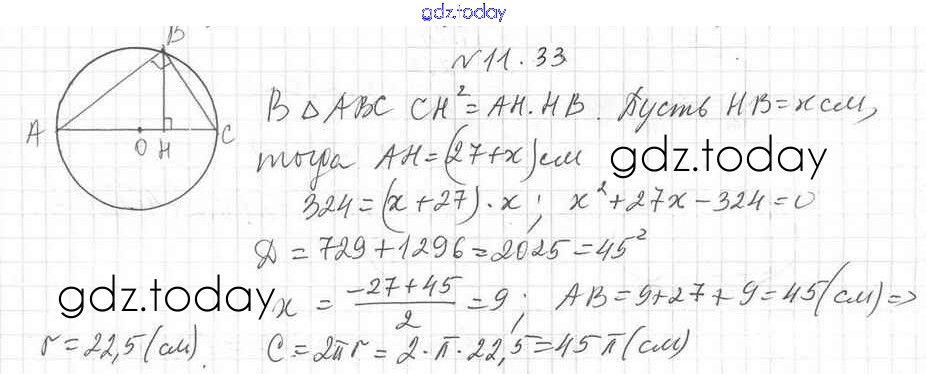 gdz.today
B
№11.33
A
O
H
C
В △ABC CH² = AH · HB. Пусть HB = x см,
тогда AH = (27+x) см
gdz.today
324 = (x+27) · x ; x² + 27x − 324 = 0
Д = 729 + 1296 = 2025 = 45²
gdz.today
x = (−27+45)/2 = 9 ; AB = 9+27+9 = 45 (см) =>
r = 22,5 (см). C = 2πr = 2 · π · 22,5 = 45π (см)